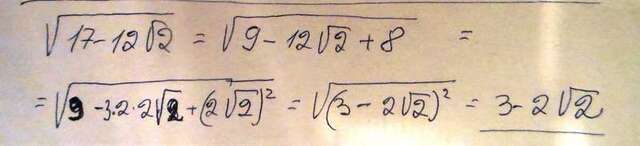 √(17-12√2) = √(9-12√2+8) =
= √(9-3.2·2√2+(2√2)²) = √((3-2√2)²) = 3-2√2